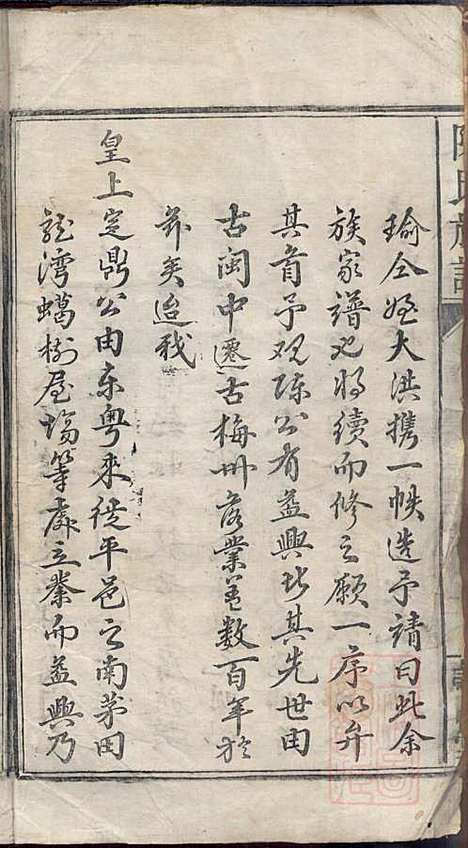 瑜仝姪大洪携一帙造予請曰此余
族家譜也将續而修之願一序以弁
其首予观陈公有益興比其先世由
古閩中遷古梅州落業蓋数百年於
茲矣迨我
皇上定鼎公由东粤来徙平邑之南茅田
龍湾蝎樹屋塲等處立業而益興乃
陳氏族譜